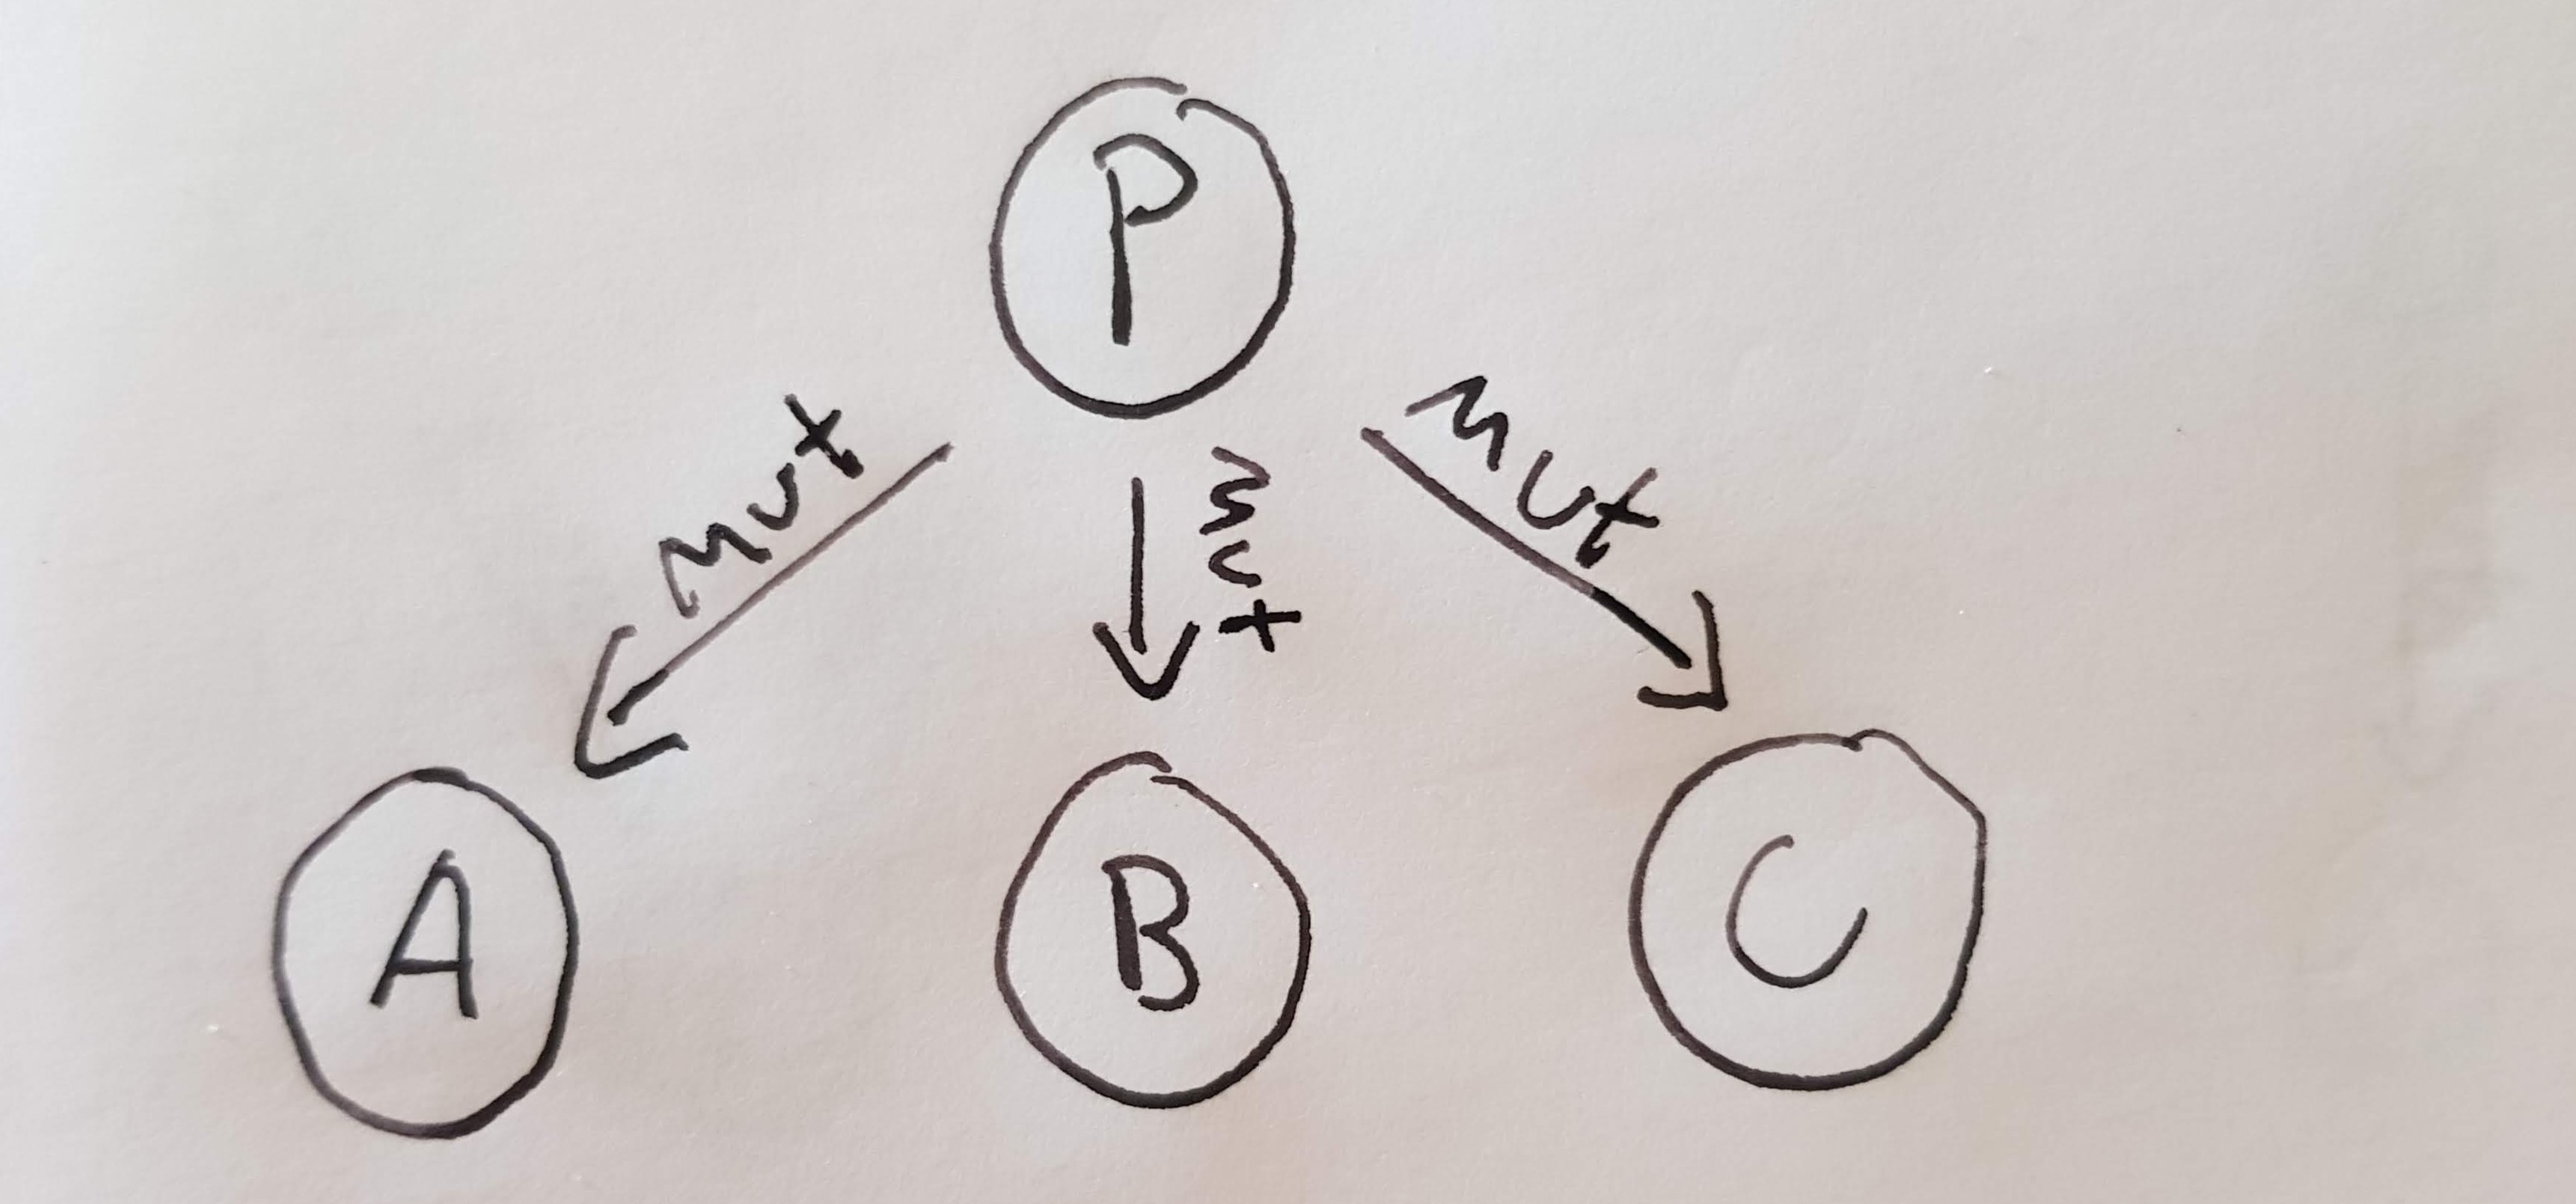 P
Mut
Mut
Mut
A
B
C